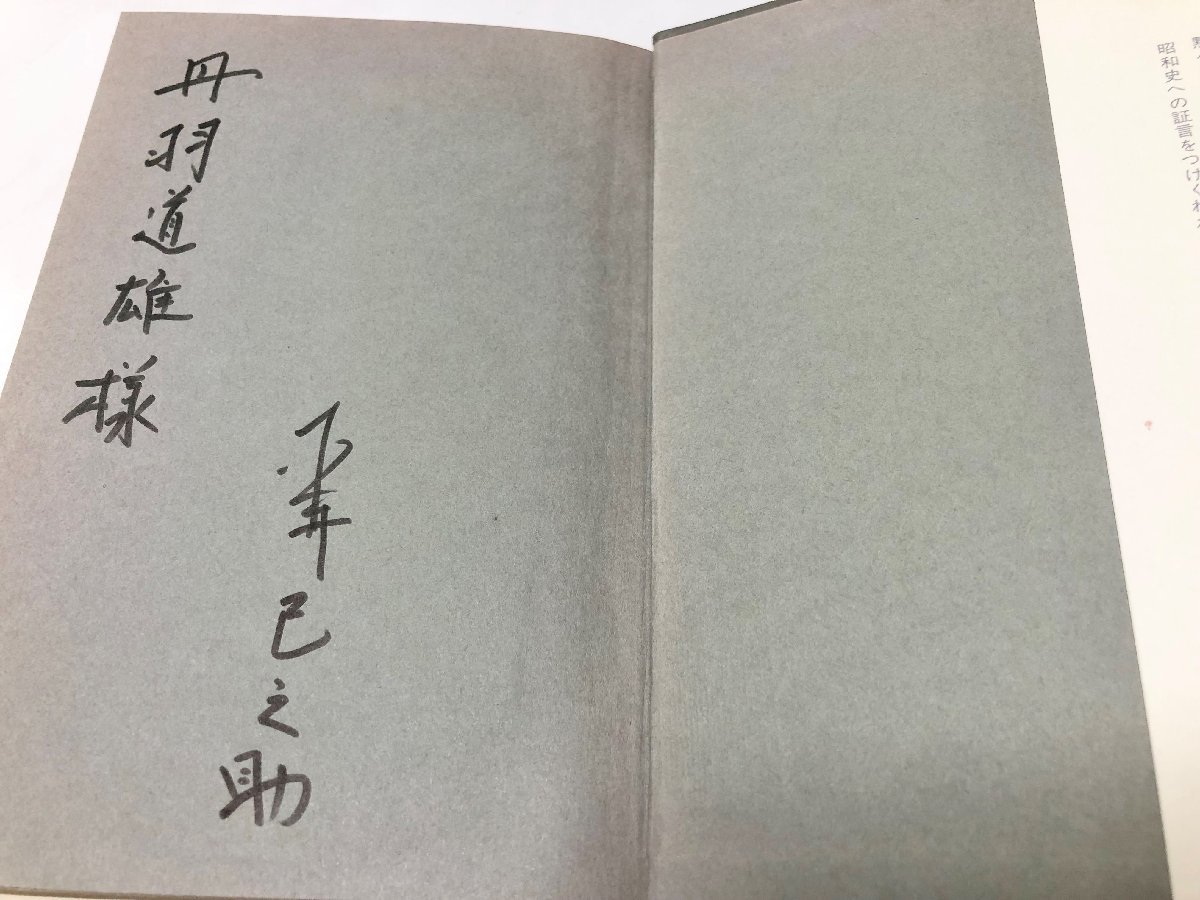 昭和史への証言をつけくわえ
平井巳之助
丹羽道雄様